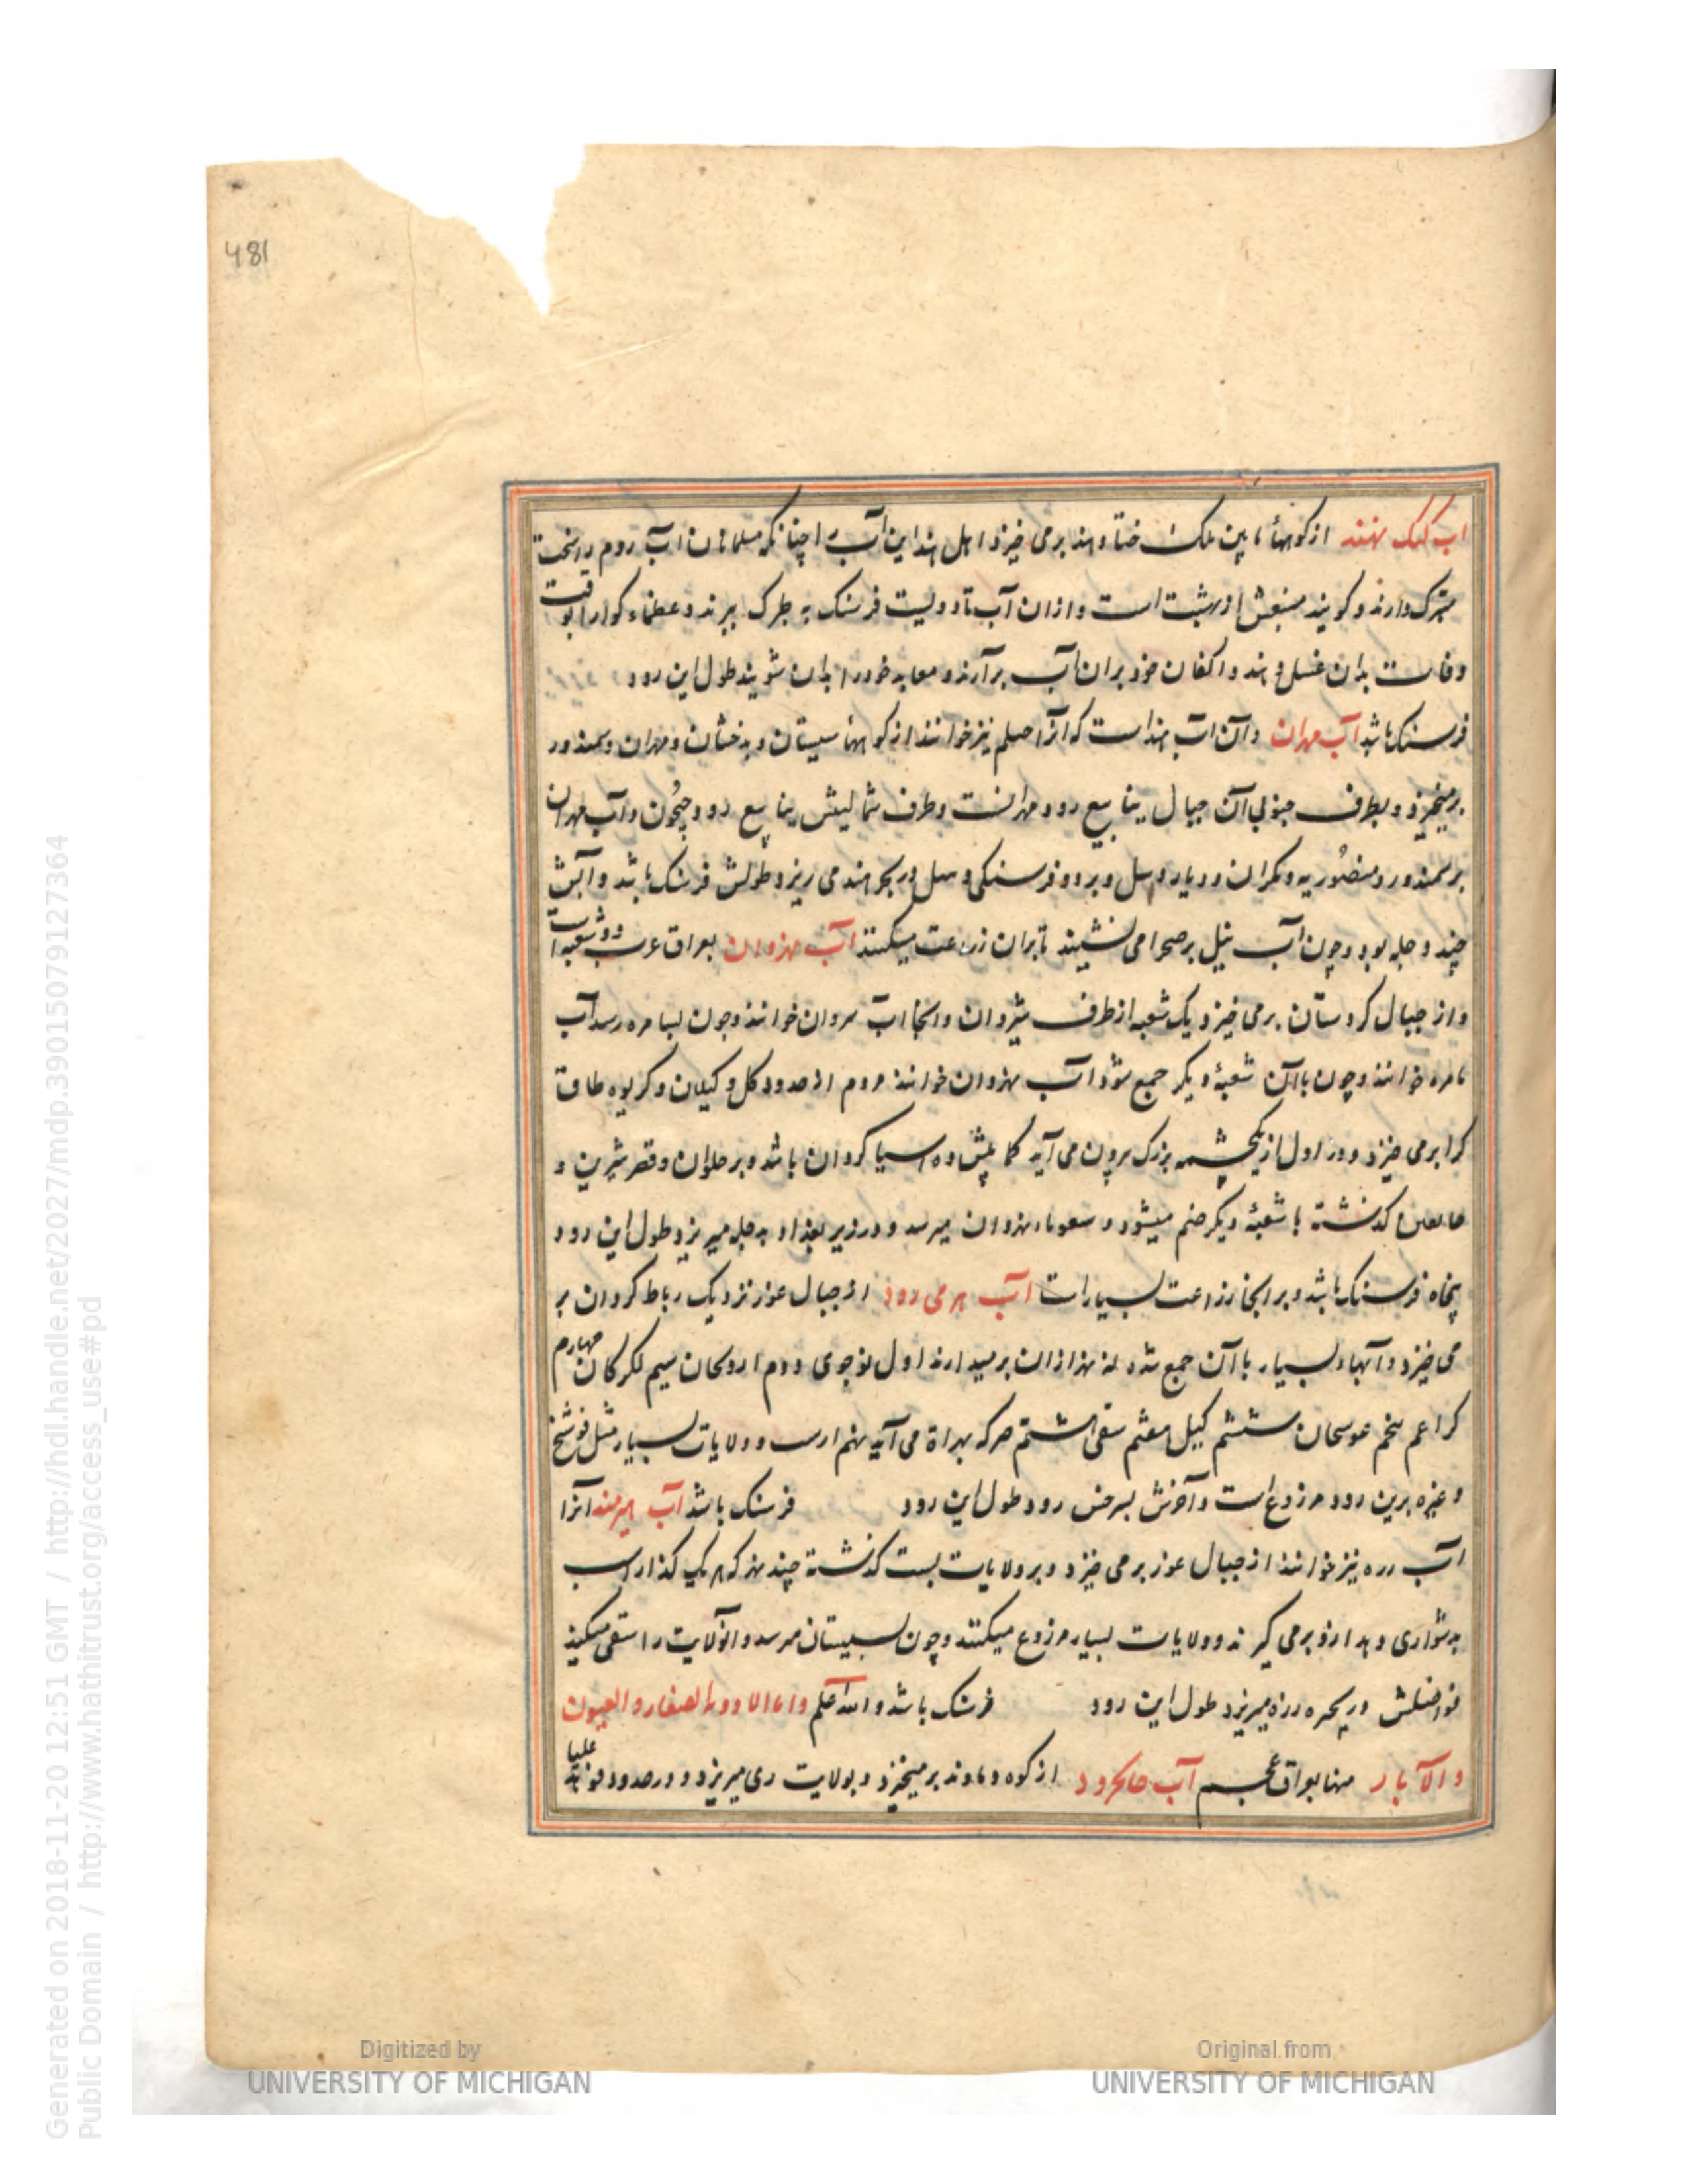 481
اب کنک بهند از کوههاء مابین ملک ختا و هند برمی خیزد اهل هند این آب را چنانکه مسلمانان آب زمزم را سخت
متبرک دارند و کویند منبعش از بهشت است و از ان آب تا دویست فرسنک به طرک ببرند و عظماء کوارا بوقت
وفات بدان غسل دهند و اکفان خود بران آب برآرند و معابد خود را بدان شویند طول این رود
فرسنک باشد آب مهران و آن آب هند است که آنرا صلم نیز خوانند از کوهها سیستان و بدخشان و مهران و سمندور
برمیخیزد و بطرف جنوبی آن جبال ینابیع رود مهرانست و طرف شمالیش ینابیع رود جیحون و آب مهران
بر سمندور و منصوریه و مکران و دیار دیبل و بر دو فرسنکی دیبل در بحر هند می ریزد طولش فرسنک باشد و آبش
چند دجله بود و چون آب نیل بر صحرا می نشیند تا بران زراعت میکنند آب نهروان بعراق عرب دو شعبه است
و از جبال کردستان برمی خیزد یک شعبه از طرف شروان و انجا اب سروان خوانند و چون بتامره رسد آب
تامره خوانند و چون باآن شعبهٔ دیکر جمع شود اب نهروان خوانند دوم از حدود کل و کیلان و کریوه طاق
کرا برمی خیزد و در اول از یکچشمه بزرک برون می آید کما بیش ده اسیا کردان باشد و بر حلوان و قصر شرین و
خانقین کذشته با شعبهٔ دیکر ضم میشود و بنهروان میرسد و در زیر بغداد به دجله میریزد طول این رود
پنجاه فرسنک باشد و بر انجا زراعت بسیارات آب هری رود از جبال غور نزدیک رباط کردان بر
می خیزد و آبهاء بسیار باآن جمع شده نه نهر از ان برمیدارند اول نوجوی دوم اردکان سیم لکرکان چهارم
کراغم پنجم غوسحان ششم کیل هفتم سقی هشتم صرکه بهراة می آید نهم ارس و ولایات بسیار مثل فوشنج
و غیره برین رود مزروع است و آخرش بسرخس رود طول این رود فرسنک باشد آب هیرمند آنرا
اب زره نیز خوانند از جبال غور برمی خیزد و بر ولایات بست کذشته چند نهر که هر یک کذار اسب
بدشواری و بد ازو برمی کیرند و ولایات بسیار مزروع میکنند و چون بسیستان مرسد و انولایت را سقی میکنند
فواضلش در بحیره زره میریزد طول این رود فرسنک باشد و الله اعلم و اما الاودیه الصغار و العیون
و الآبار منها بعراق عجم آب جاجرود از کوه دماوند برمیخیزد و بولایت ری میریزد و در حدود
Digitized by UNIVERSITY OF MICHIGAN
Original from UNIVERSITY OF MICHIGAN
Generated on 2018-11-20 12:51 GMT / http://hdl.handle.net/2027/mdp.39015079127364
Public Domain / http://www.hathitrust.org/access_use#pd